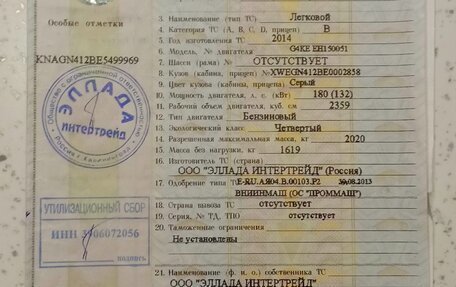 Особые отметки
KNAGN412BE5499969
ЭЛЛАДА
ИНТЕРТРЕЙД
УТИЛИЗАЦИОННЫЙ СБОР
ИНН 3906072056
подпись
3. Наименование (тип ТС) Легковой
4. Категория ТС (А, В, С, D, прицеп) B
5. Год изготовления ТС 2014
6. Модель, № двигателя G4KE EH150051
7. Шасси (рама) № ОТСУТСТВУЕТ
8. Кузов (кабина, прицеп) № XWEGN412BE0002858
9. Цвет кузова (кабины, прицепа) Серый
10. Мощность двигателя, л. с. (кВт) 180 (132)
11. Рабочий объем двигателя, куб. см 2359
12. Тип двигателя Бензиновый
13. Экологический класс Четвертый
14. Разрешенная максимальная масса, кг 2020
15. Масса без нагрузки, кг 1619
16. Изготовитель ТС (страна)
ООО "ЭЛЛАДА ИНТЕРТРЕЙД" (Россия)
17. Одобрение типа ТС № E-RU.АЯ04.B.00103.P2 30.08.2013
ВНИИНМАШ (ОС "ПРОММАШ")
18. Страна вывоза ТС отсутствует
19. Серия, № ТД, ТПО отсутствует
20. Таможенные ограничения
Не установлены
21. Наименование (ф. и. о.) собственника ТС
ООО "ЭЛЛАДА ИНТЕРТРЕЙД"